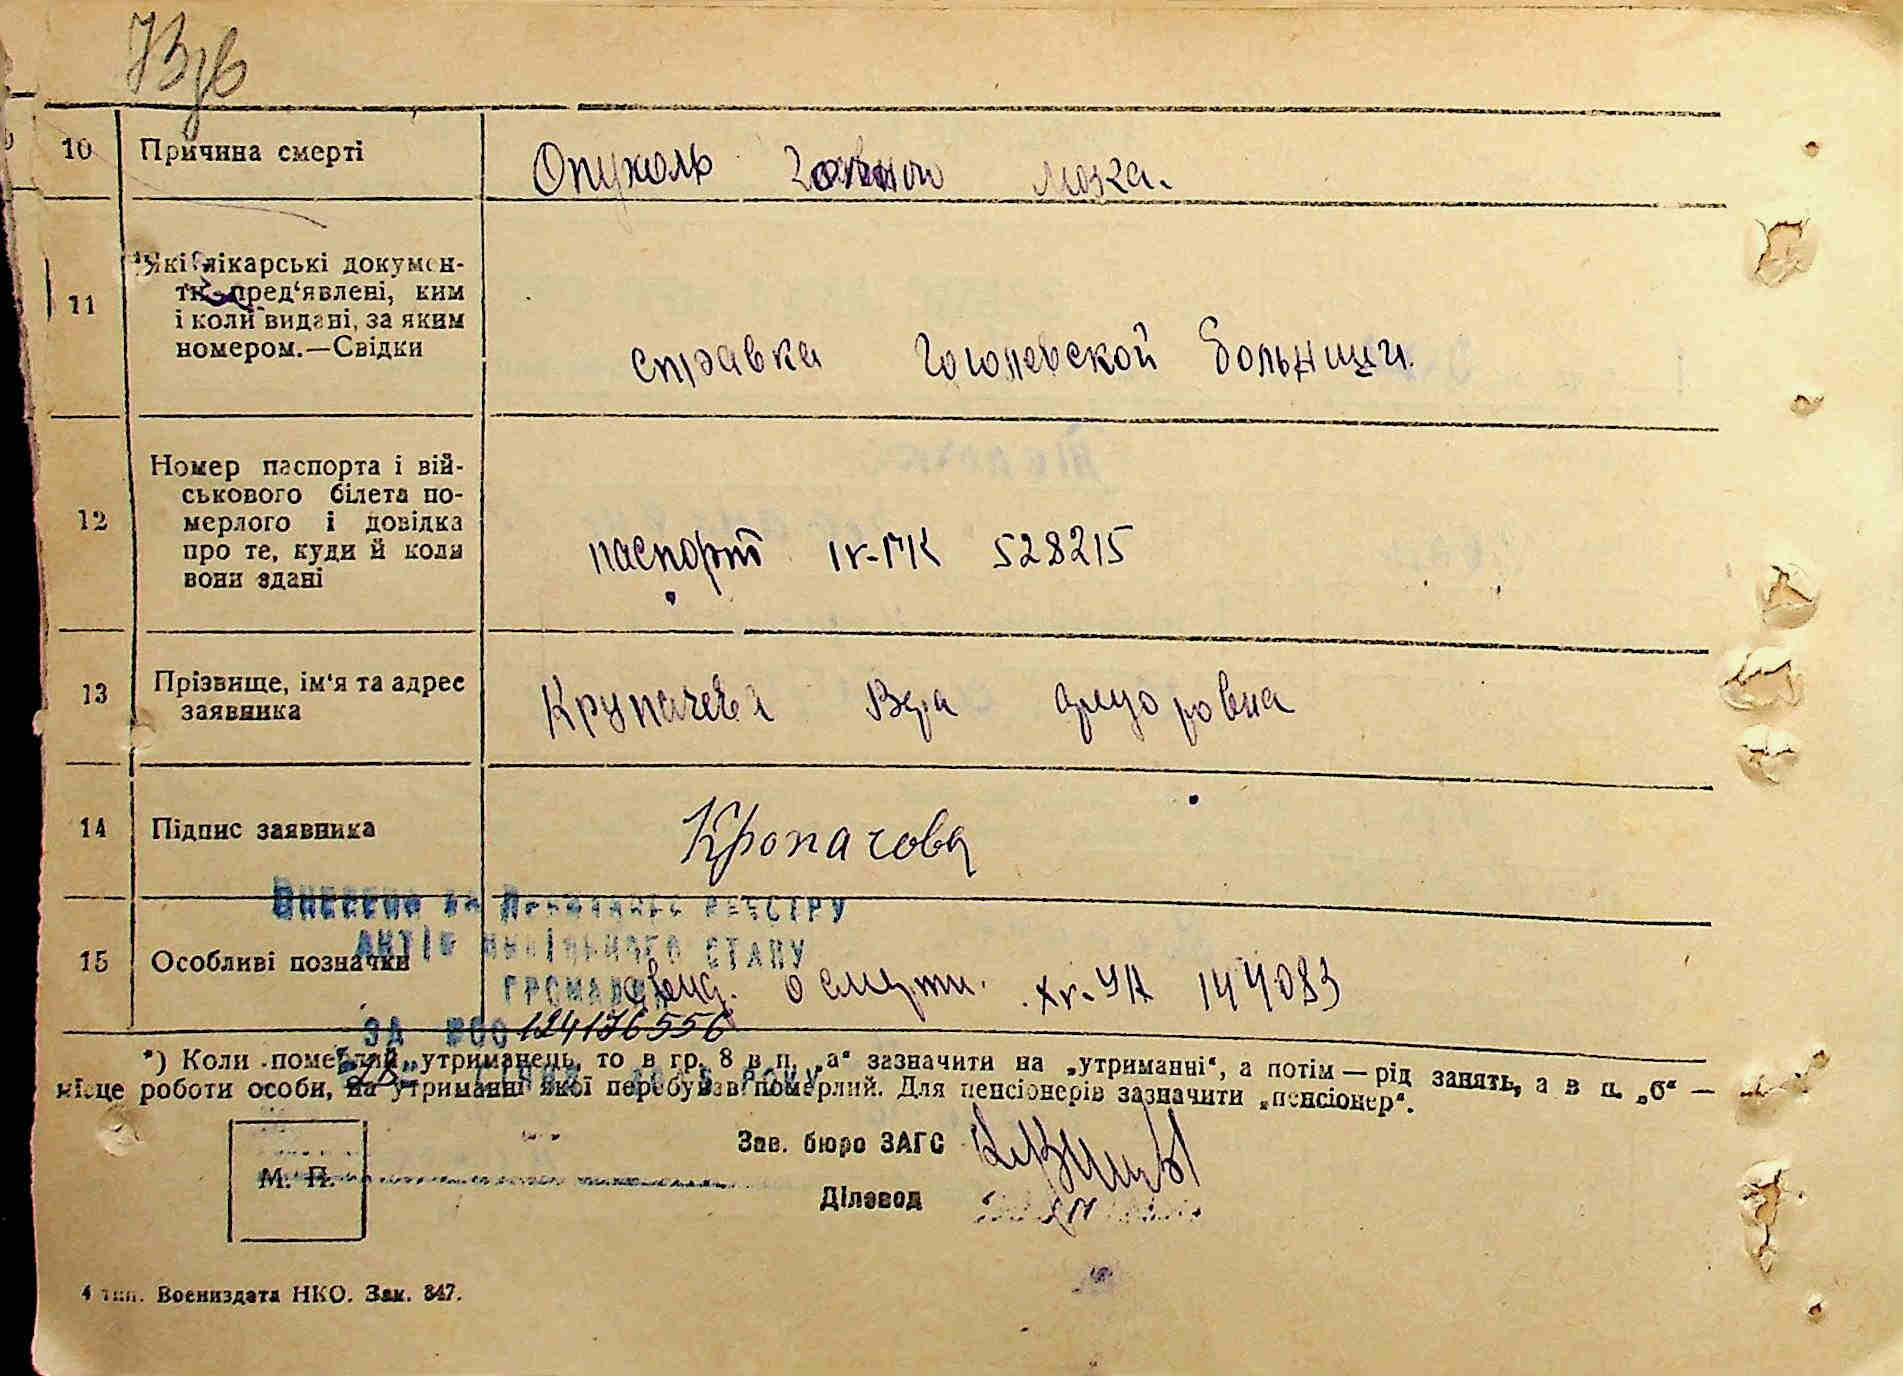 10 Причина смерті
Опухоль головного мозга.
11 Які лікарські докумен-
ти пред‘явлені, ким
і коли видані, за яким
номером.—Свідки
справка Гоголевской больници.
12 Номер паспорта і вій-
ськового білета по-
мерлого і довідка
про те, куди й коли
вони здані
паспорт IV-ГК 528215
13 Прізвище, ім‘я та адрес
заявника
Крупачева Вера
14 Підпис заявника
Кропачова
15 Особливі позначки
Внесено до Державного реєстру
актів цивільного стану
громадян
за №00124176556
свид. о смерти. 144083
*) Коли померлий „утриманець, то в гр. 8 в п. „а“ зазначити на „утриманні“, а потім — рід занять, а в п. „б“ —
місце роботи особи, на утриманні якої перебував померлий. Для пенсіонерів зазначити „пенсіонер“.
М. П.
Зав. бюро ЗАГС
Діловод
4 тип. Воениздата НКО. Зак. 847.